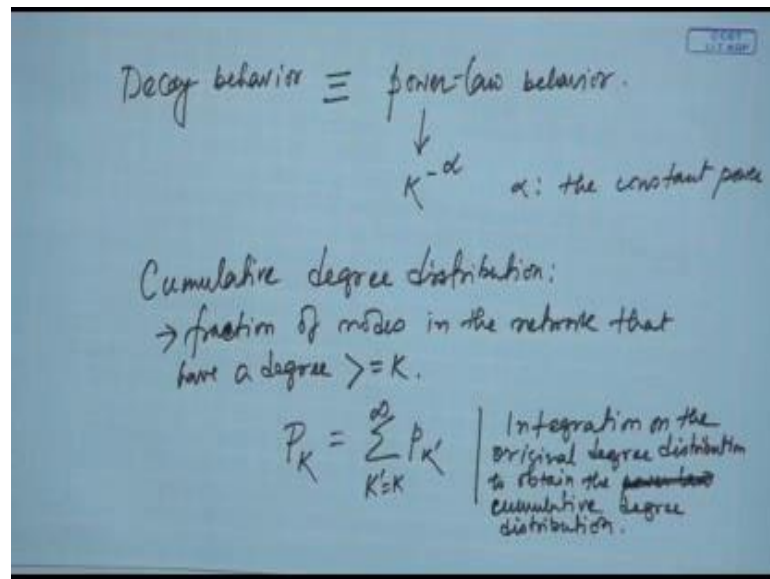 Decay behavior ≡ power-law behavior.
↓
K^-α α: the constant power
Cumulative degree distribution:
→ fraction of nodes in the network that
have a degree >= K.
P_K = ∑_{K'=K}^∞ p_{K'}
Integration on the
original degree distribution
to obtain the ~~power law~~
cumulative degree
distribution.